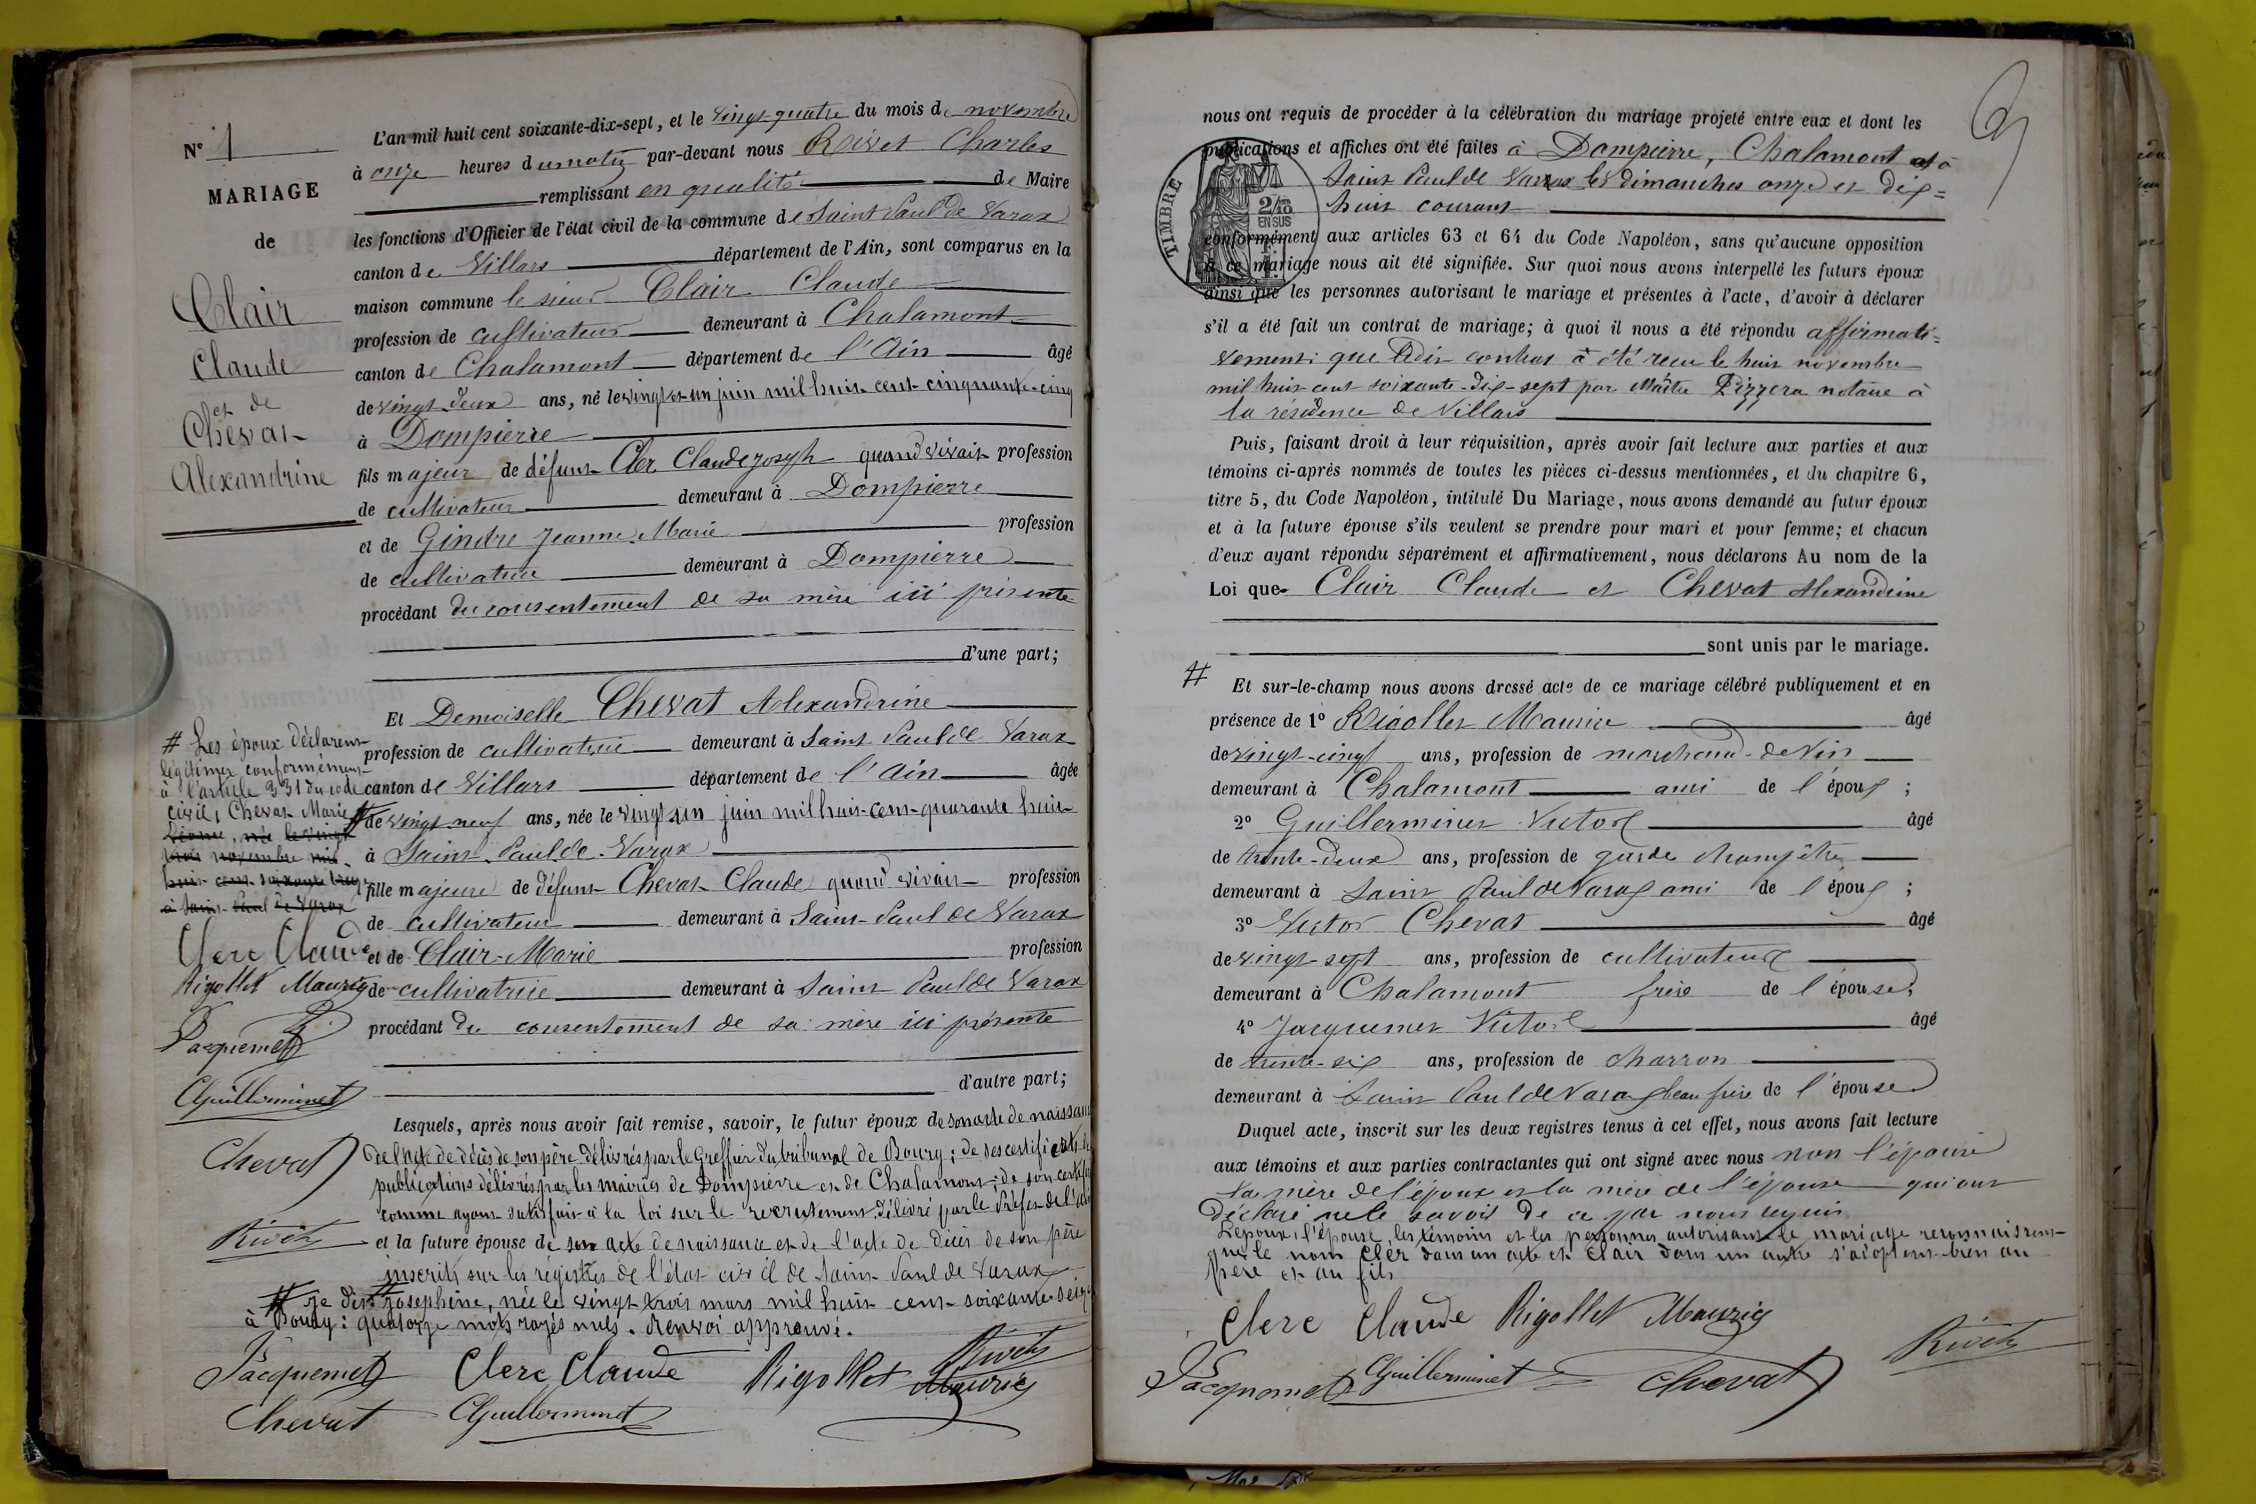 N° 1
MARIAGE
de
Clair
Claude
et de
Chevat
Alexandrine
L'an mil huit cent soixante-dix-sept, et le vingt-quatre du mois de novembre
à onze heures du matin par-devant nous Rivet Charles
remplissant en qualité de Maire
les fonctions d'Officier de l'état civil de la commune de Saint Paul de Varax
canton de Villars département de l'Ain, sont comparus en la
maison commune le sieur Clair Claude
profession de cultivateur demeurant à Chalamont
canton de Chalamont département de l'Ain âgé
de vingt-deux ans, né le vingt et un juin mil huit cent cinquante-cinq
à Dompierre
fils majeur de défunt Cler Claude Joseph quand vivait profession
de cultivateur demeurant à Dompierre
et de Gindre Jeanne Marie profession
de cultivatrice demeurant à Dompierre
procédant du consentement de sa mère ici présente
d'une part;
Et Demoiselle Chevat Alexandrine
profession de cultivatrice demeurant à Saint Paul de Varax
canton de Villars département de l'Ain âgée
de vingt-neuf ans, née le vingt un juin mil huit-cent-quarante huit
à Saint-Paul-de-Varax
fille majeure de défunt Chevat Claude quand vivait profession
de cultivateur demeurant à Saint-Paul de Varax
et de Clair-Marie profession
de cultivatrice demeurant à Saint Paul de Varax
procédant du consentement de sa mère ici présente
d'autre part;
# Les époux déclarent
légitimer conformément
à l'article 331 du code
civil, Chevat Marie #
Léonie, née le vingt
trois novembre mil
huit cent soixante treize
à Saint-Paul de Varax
Clerc Claude
Rigollet Mauriz
Jacquemet
Guillerminet
Chevat
Rivet
Lesquels, après nous avoir fait remise, savoir, le futur époux de son acte de naissance
de l'acte de décès de son père délivrés par le Greffier du tribunal de Bourg; de ses certificats de
publications délivrés par les mairies de Dompierre et de Chalamont; de son certificat
comme ayant satisfait à la loi sur le recrutement délivré par le Préfet de l'Ain
et la future épouse de son acte de naissance et de l'acte de décès de son père
inscrits sur les registres de l'état civil de Saint-Paul de Varax
# je dis # Josephine, née le vingt trois mars mil huit cent soixante seize
à Bourg: quatorze mots rayés nuls. Renvoi approuvé.
Jacquemet Clerc Claude Rigollet Mauriz Rivet
Chevat Guillerminet
nous ont requis de procéder à la célébration du mariage projeté entre eux et dont les
publications et affiches ont été faites à Dompierre, Chalamont et à
Saint Paul de Varax les dimanches onze et dix=
huit courant
TIMBRE
2/10
EN SUS
conformément aux articles 63 et 64 du Code Napoléon, sans qu'aucune opposition
à ce mariage nous ait été signifiée. Sur quoi nous avons interpellé les futurs époux
ainsi que les personnes autorisant le mariage et présentes à l'acte, d'avoir à déclarer
s'il a été fait un contrat de mariage; à quoi il nous a été répondu affirmati=
vement que ledit contrat a été reçu le huit novembre
mil huit cent soixante-dix-sept par Maître Pizzera notaire à
la résidence de Villars
Puis, faisant droit à leur réquisition, après avoir fait lecture aux parties et aux
témoins ci-après nommés de toutes les pièces ci-dessus mentionnées, et du chapitre 6,
titre 5, du Code Napoléon, intitulé Du Mariage, nous avons demandé au futur époux
et à la future épouse s'ils veulent se prendre pour mari et pour femme; et chacun
d'eux ayant répondu séparément et affirmativement, nous déclarons Au nom de la
Loi que Clair Claude et Chevat Alexandrine
sont unis par le mariage.
# Et sur-le-champ nous avons dressé acte de ce mariage célébré publiquement et en
présence de 1° Rigollet Maurice âgé
de vingt-cinq ans, profession de marchand de vin
demeurant à Chalamont ami de l'époux;
2° Guillerminet Victor âgé
de trente-deux ans, profession de garde champêtre
demeurant à Saint Paul de Varax ami de l'époux;
3° Victor Chevat âgé
de vingt-sept ans, profession de cultivateur
demeurant à Chalamont frère de l'épouse;
4° Jacquemet Victor âgé
de trente-six ans, profession de charron
demeurant à Saint Paul de Varax beau frère de l'épouse
Duquel acte, inscrit sur les deux registres tenus à cet effet, nous avons fait lecture
aux témoins et aux parties contractantes qui ont signé avec nous non l'épouse
la mère de l'époux et la mère de l'épouse qui ont
déclaré ne le savoir de ce par nous requis
L'époux, l'épouse, les témoins et les personnes autorisant le mariage reconnaissent
que le nom Cler dans un acte et Clair dans un autre s'adoptent bien au
père et au fils
Clerc Claude Rigollet Mauriz
Jacquemet Guillerminet Chevat Rivet